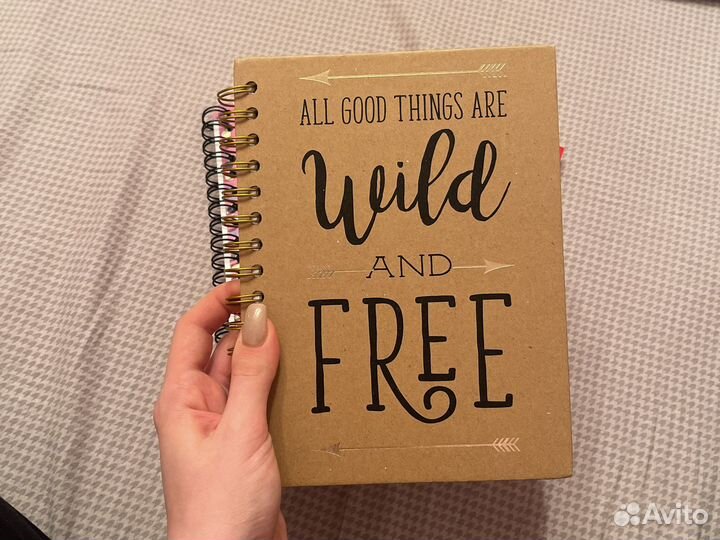 ALL GOOD THINGS ARE
Wild
AND
FREE
Avito